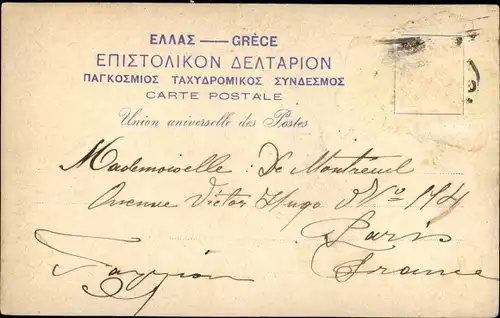 ΕΛΛΑΣ — GRÈCE
ΕΠΙΣΤΟΛΙΚΟΝ ΔΕΛΤΑΡΙΟΝ
ΠΑΓΚΟΣΜΙΟΣ ΤΑΧΥΔΡΟΜΙΚΟΣ ΣΥΝΔΕΣΜΟΣ
CARTE POSTALE
Union universelle des Postes
Mademoiselle : De Montreuil
Avenue Victor Hugo Nº 174
Paris
France